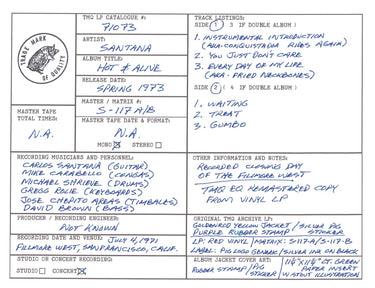 TMQ LP CATALOGUE #:
71073
ARTIST:
SANTANA
ALBUM TITLE:
HOT & ALIVE
RELEASE DATE:
SPRING 1973
MASTER / MATRIX #:
S-117 A/B
MASTER TAPE DATE & FORMAT:
N.A.
MONO ☒ STEREO ☐
TRADE MARK
OF QUALITY
MASTER TAPE
TOTAL TIMES:
N.A.
TRACK LISTINGS:
SIDE 1 ( 3 IF DOUBLE ALBUM )
1. INSTRUMENTAL INTRODUCTION
(AKA: CONQUISTADOR RIDES AGAIN)
2. YOU JUST DON'T CARE
3. EVERY DAY OF MY LIFE
(AKA: FRIED NECKBONES)
SIDE 2 ( 4 IF DOUBLE ALBUM )
1. WAITING
2. TREAT
3. GUMBO
RECORDING MUSICIANS AND PERSONNEL:
CARLOS SANTANA (GUITAR)
MIKE CARABELLO (CONGAS)
MICHAEL SHRIEVE (DRUMS)
GREGG ROLIE (KEYBOARDS)
JOSE CHEPITO AREAS (TIMBALES)
DAVID BROWN (BASS)
OTHER INFORMATION AND NOTES:
RECORDED CLOSING DAY
OF THE FILLMORE WEST
TMQ EQ REMASTERED COPY
FROM VINYL LP
PRODUCER / RECORDING ENGINEER:
NOT KNOWN
RECORDING DATE & VENUE: JULY 4, 1971
FILLMORE WEST, SAN FRANCISCO, CALIF.
STUDIO OR CONCERT RECORDING:
STUDIO ☐ CONCERT ☒
ORIGINAL TMQ ARCHIVE LP:
GOLDENROD YELLOW JACKET / SILVER PIG
PURPLE RUBBER STAMP STICKER
LP: RED VINYL / MATRIX: S-117-A / S-117-B
LABEL: PIG LOGO GENERIC / SILVER INK ON BLACK
ALBUM JACKET COVER ART:
RUBBER STAMP / PIG STICKER
GREEN
PAPER INSERT
W/STOUT ILLUSTRATION